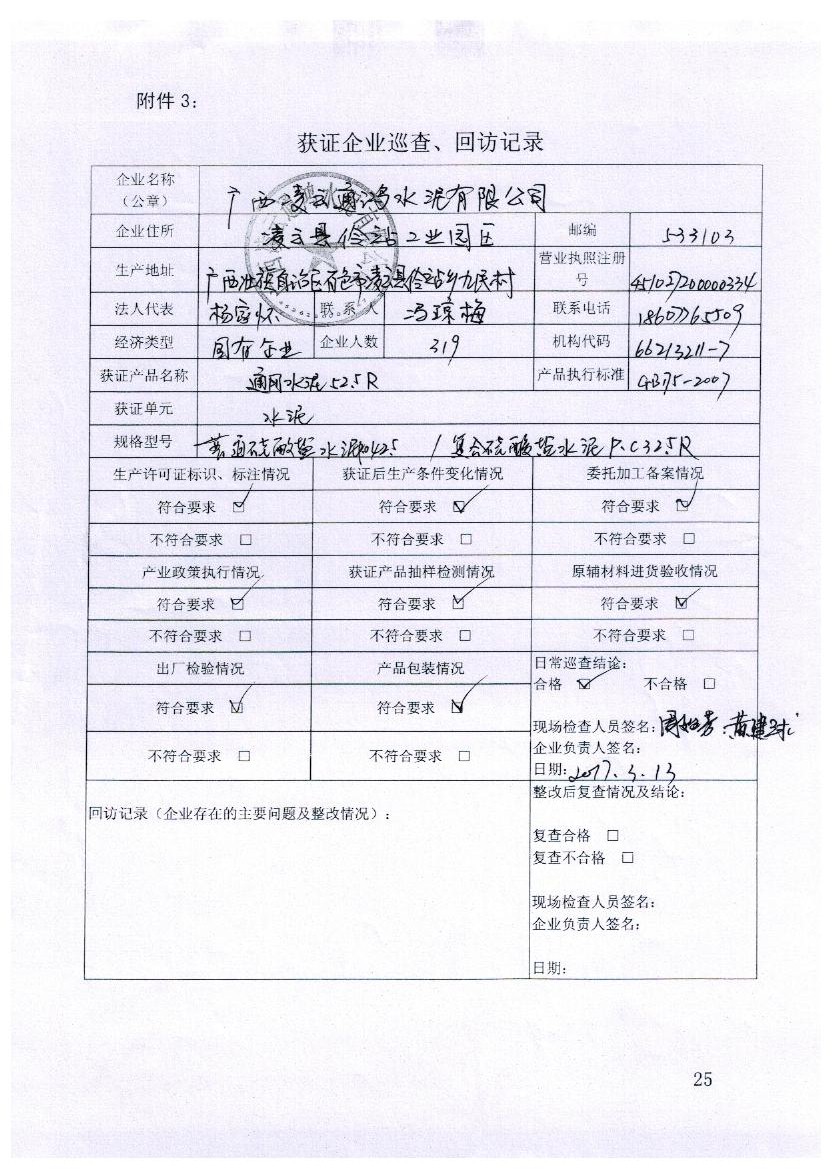 附件 3:
获证企业巡查、回访记录
企业名称（公章） 广西凌云通鸿水泥有限公司
企业住所 凌云县伶站工业园区 邮编 533103
生产地址 广西壮族自治区百色市凌云县伶站乡九民村 营业执照注册号 451027200000334
法人代表 杨家怀 联系人 冯琼梅 联系电话 18607765509
经济类型 国有企业 企业人数 319 机构代码 66213211-7
获证产品名称 通用水泥52.5R 产品执行标准 GB175-2007
获证单元 水泥
规格型号 普通硅酸盐水泥P.O42.5 / 复合硅酸盐水泥P.C32.5R
生产许可证标识、标注情况 获证后生产条件变化情况 委托加工备案情况
符合要求 ☑ 符合要求 ☑ 符合要求 ☑
不符合要求 □ 不符合要求 □ 不符合要求 □
产业政策执行情况 获证产品抽样检测情况 原辅材料进货验收情况
符合要求 ☑ 符合要求 ☑ 符合要求 ☑
不符合要求 □ 不符合要求 □ 不符合要求 □
出厂检验情况 产品包装情况 日常巡查结论:
符合要求 ☑ 符合要求 ☑ 合格 ☑ 不合格 □
不符合要求 □ 不符合要求 □ 现场检查人员签名:
企业负责人签名:
日期: 2017.3.13
回访记录（企业存在的主要问题及整改情况）:
整改后复查情况及结论:
复查合格 □
复查不合格 □
现场检查人员签名:
企业负责人签名:
日期:
25